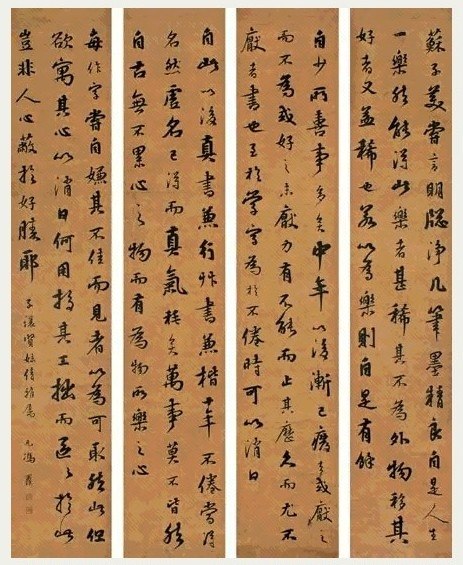 蘇子美嘗言明牕淨几筆墨精良自是人生
一樂然能得此樂者甚稀其不為外物移其
好者又益稀也若以為樂則自是有餘
自少所喜事多矣中年以後漸已廢去或厭之
而不為或好之未厭力有不能而止其歷久而尤不
厭者書也至於學字為於不倦時可以消日
自此以後真書兼行艸書兼楷十年不倦當得
名然虛名已得而真氣耗矣萬事莫不皆然
自古無不累心之物而有為物所樂之心
每作字嘗自嫌其不佳而見者以為可取然此但
欲寓其心以消日何用較其工拙而區區於此
豈非人心蔽於好勝耶
子讓賢姪倩雅屬 馮